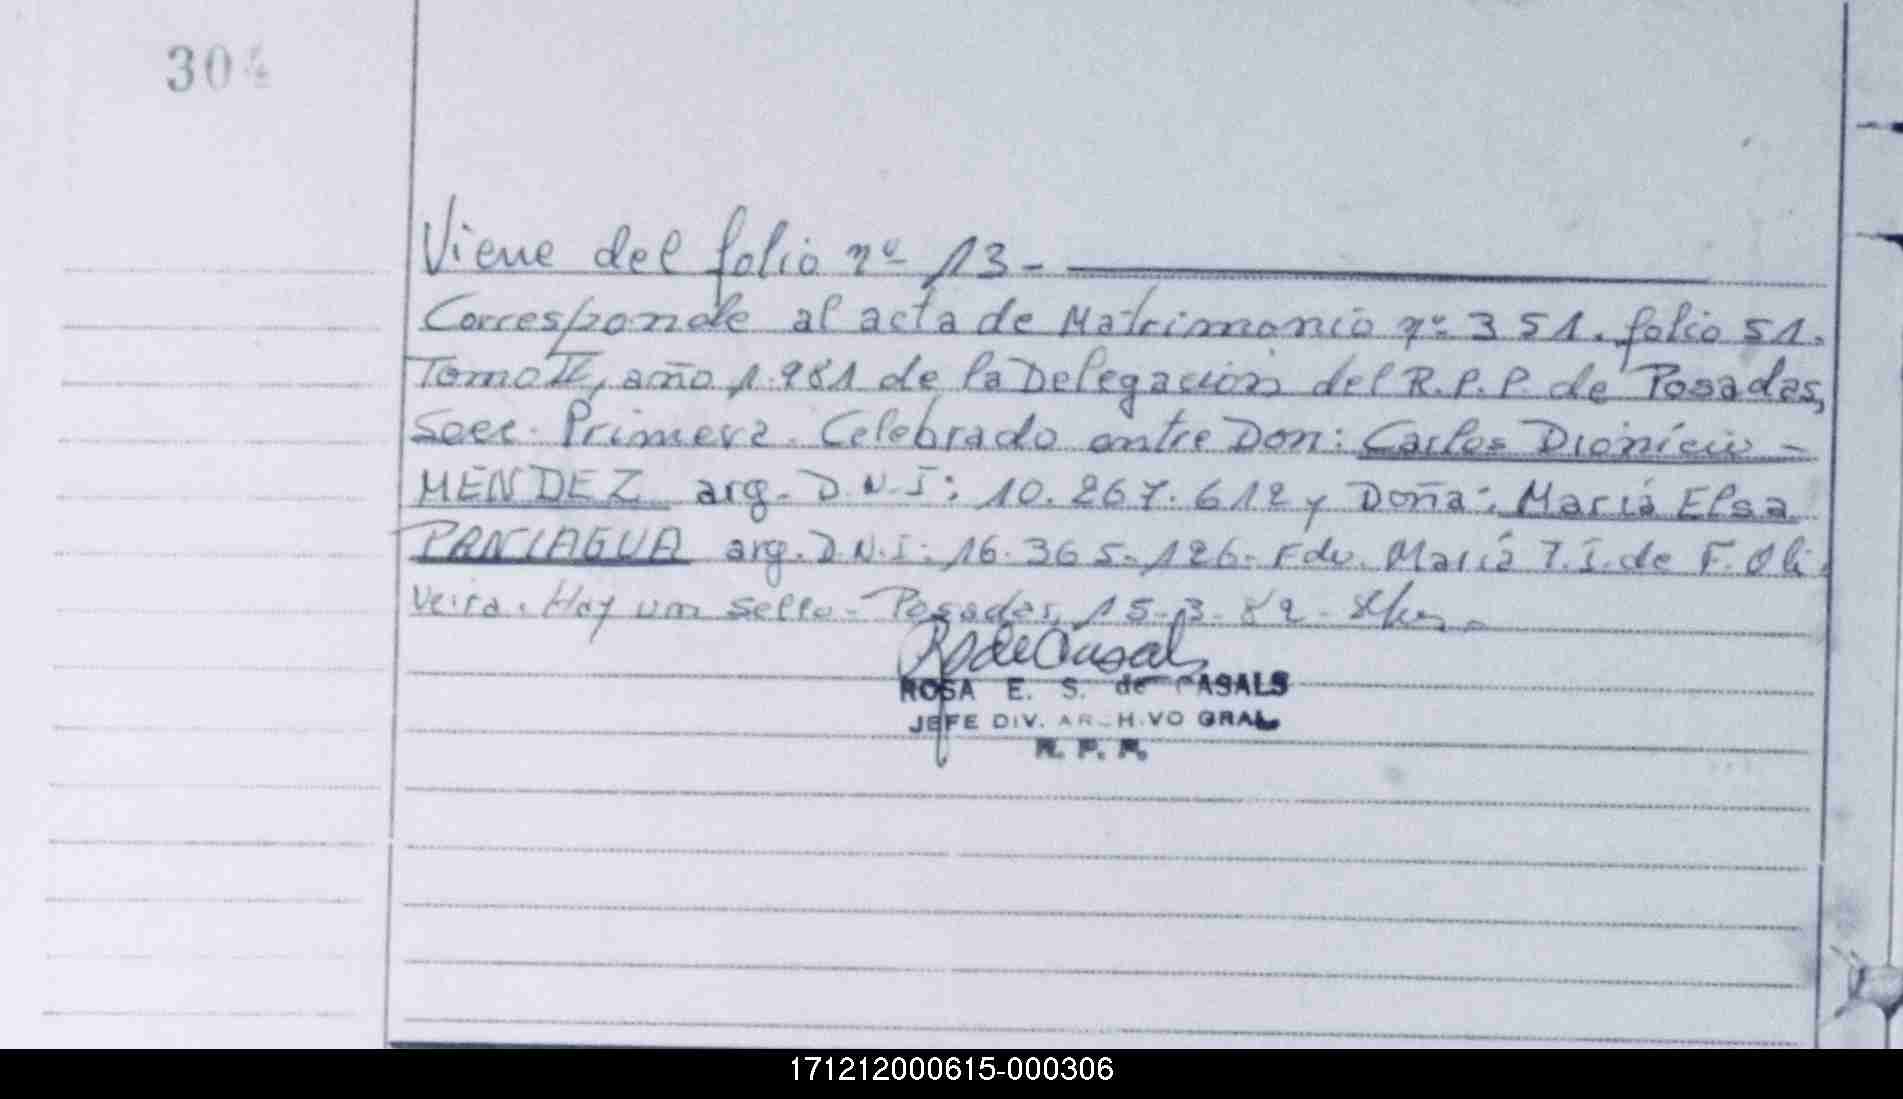 304
Viene del folio nº 13-
Corresponde al acta de Matrimonio nº 351. folio 51.
Tomo II, año 1.981 de la Delegación del R.P.P. de Posadas,
Secc. Primera. Celebrado entre Don: Carlos Dionicio -
MÉNDEZ arg. D.N.I: 10.267.612 y Doña: María Elsa
PANIAGUA arg. D.N.I: 16.365.126- Fdo. María T.I. de F. Oli
veira. Hay un sello- Posadas, 15-3-82-
ROSA E. S. de CASALS
JEFE DIV. ARCHIVO GRAL
R. P. P.
171212000615-000306